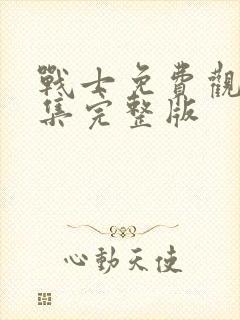 戰士免費觀
集完整版
心動天使